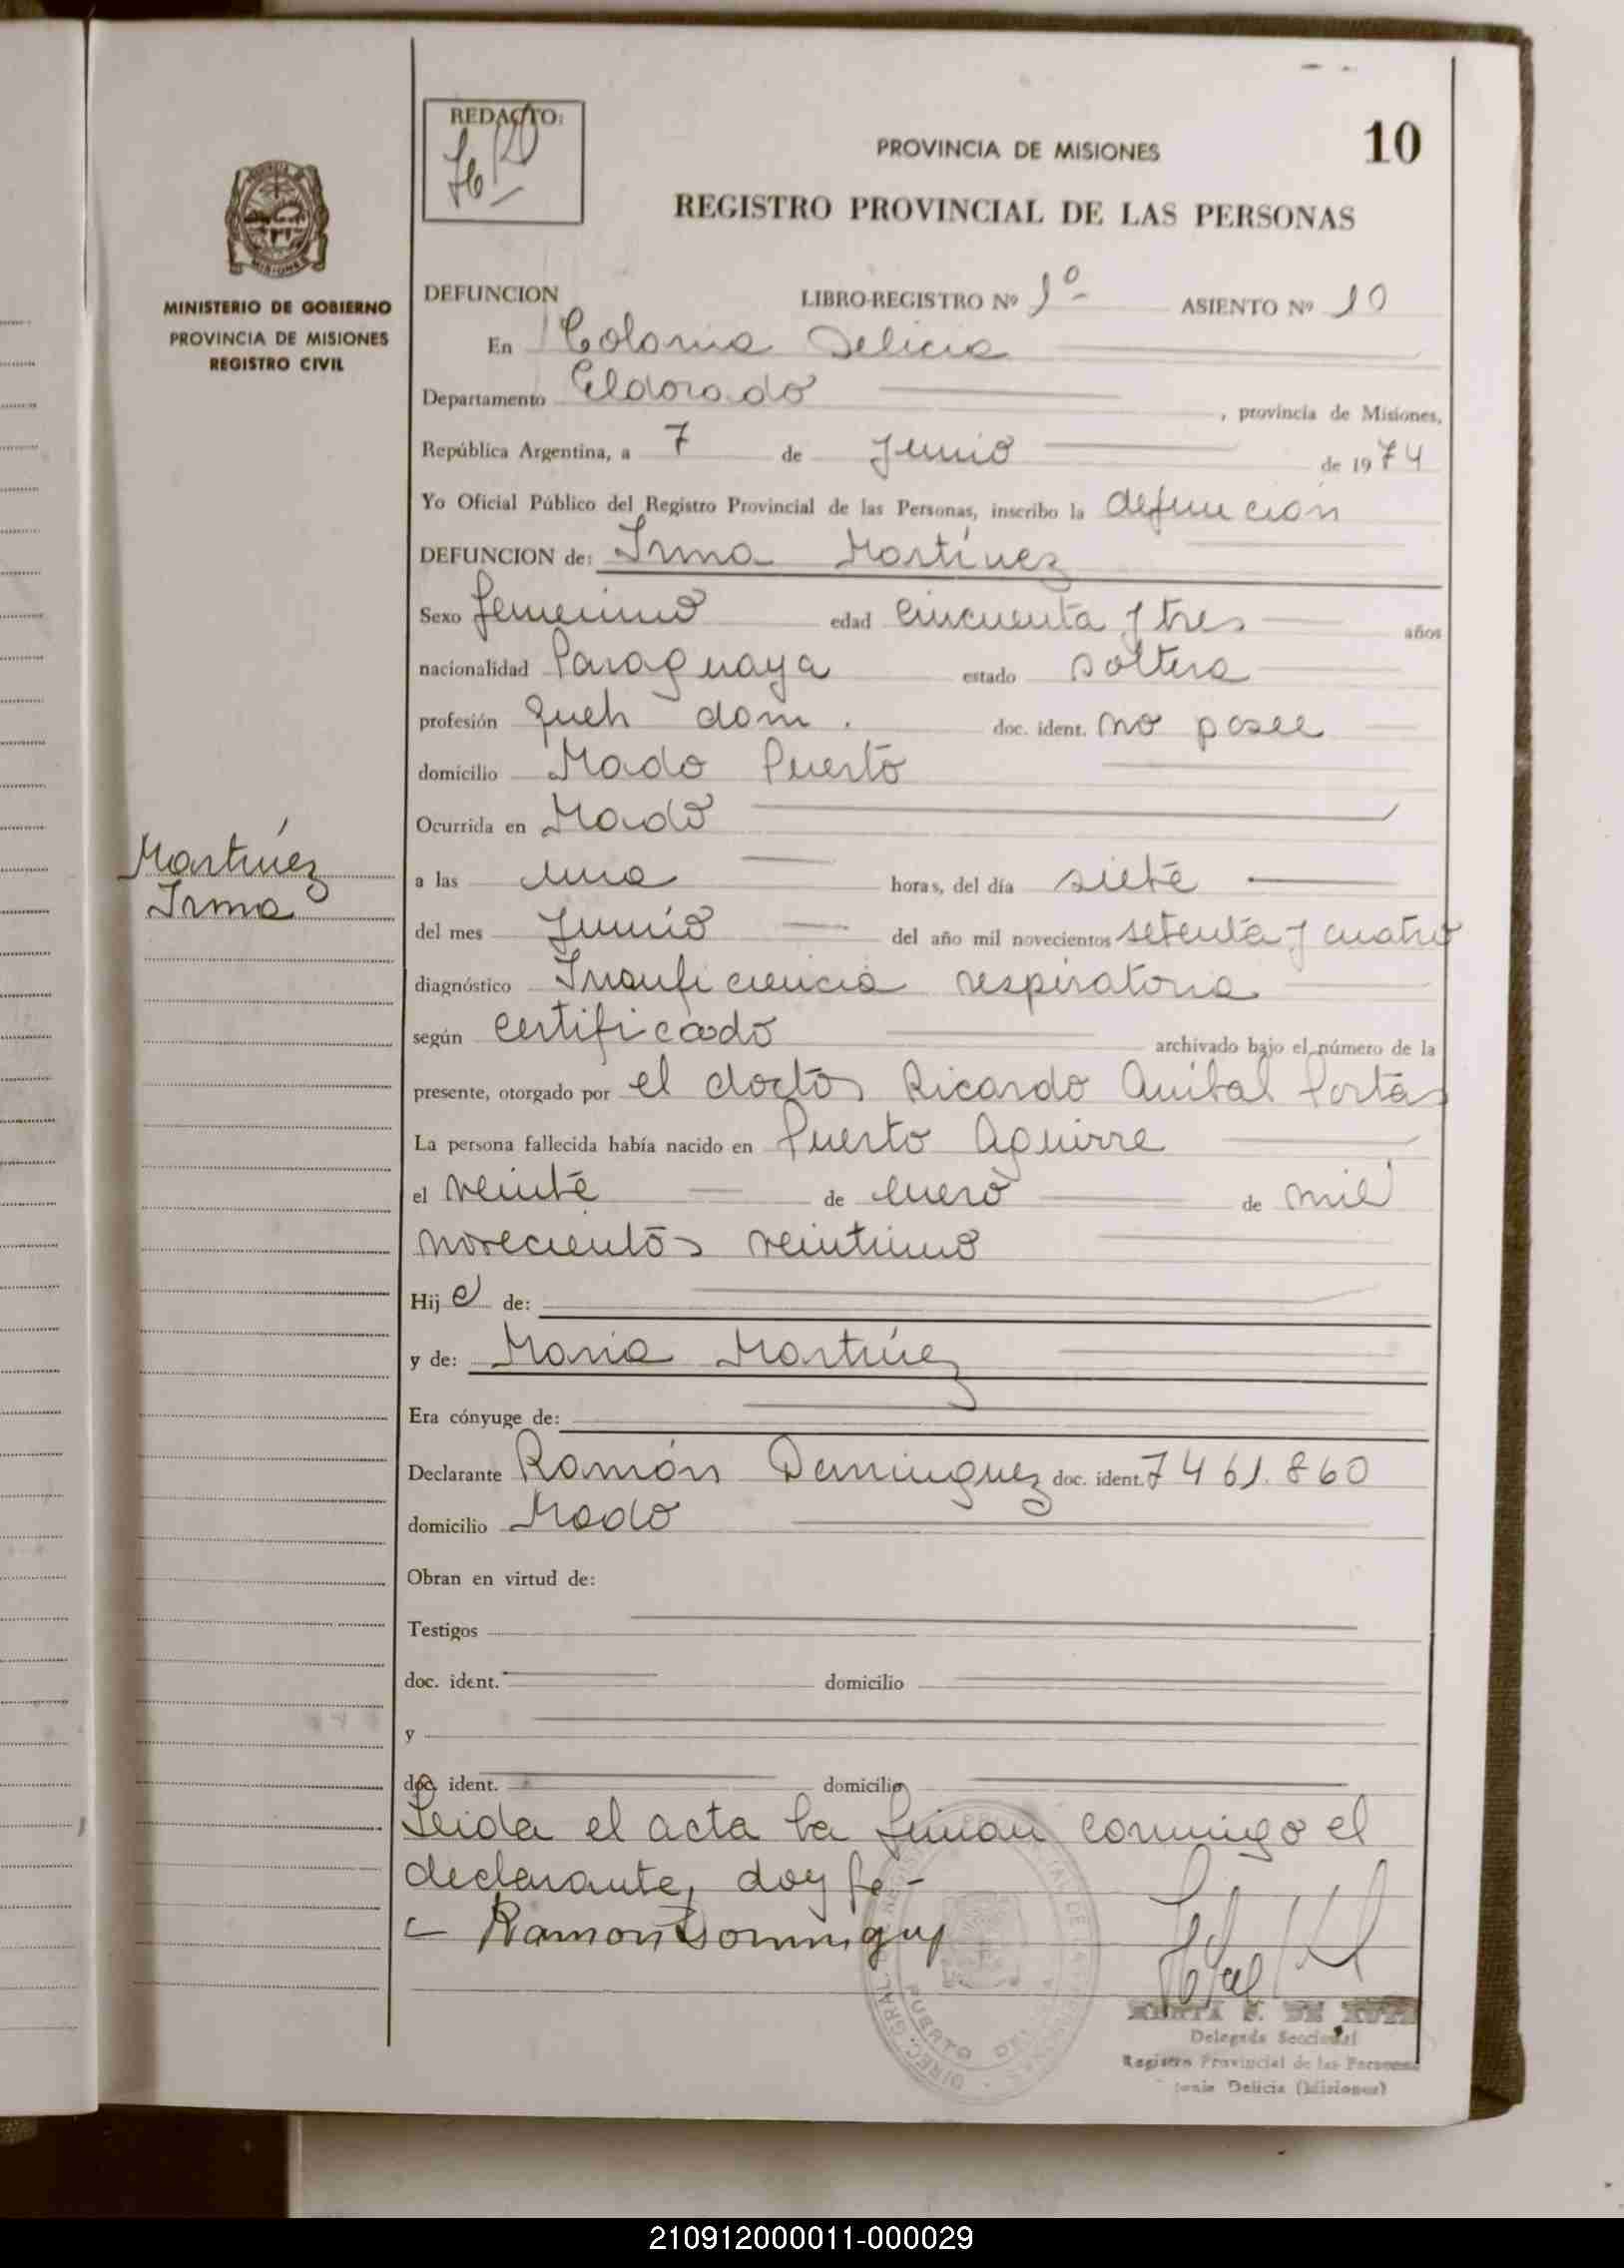 REDACTO:
PROVINCIA DE MISIONES
10
REGISTRO PROVINCIAL DE LAS PERSONAS
MINISTERIO DE GOBIERNO
PROVINCIA DE MISIONES
REGISTRO CIVIL
DEFUNCION LIBRO-REGISTRO Nº 1º- ASIENTO Nº 10
En Colonia Delicia
Departamento Eldorado, provincia de Misiones,
República Argentina, a 7 de Junio de 1974
Yo Oficial Público del Registro Provincial de las Personas, inscribo la defunción
DEFUNCION de: Irma Martínez
Sexo femenino edad cincuenta y tres años
nacionalidad Paraguaya estado soltera
profesión queh dom. doc. ident. no posee
domicilio Mado Puerto
Ocurrida en Mado
Martínez
Irma
a las una horas, del día siete
del mes Junio del año mil novecientos setenta y cuatro
diagnóstico Insuficiencia respiratoria
según certificado archivado bajo el número de la
presente, otorgado por el doctor Ricardo Anibal Portas
La persona fallecida había nacido en Puerto Aguirre
el veinte de enero de mil
novecientos veintiuno
Hija de:
y de: Maria Martínez
Era cónyuge de:
Declarante Ramón Dominguez doc. ident. 7461.860
domicilio Mado
Obran en virtud de:
Testigos
doc. ident. domicilio
y
doc. ident. domicilio
Leida el acta la firman conmigo el
declarante, doy fe.-
Ramon Dominguez
DE
Delegada Seccional
Registro Provincial de las Personas
Delicia (Misiones)
210912000011-000029